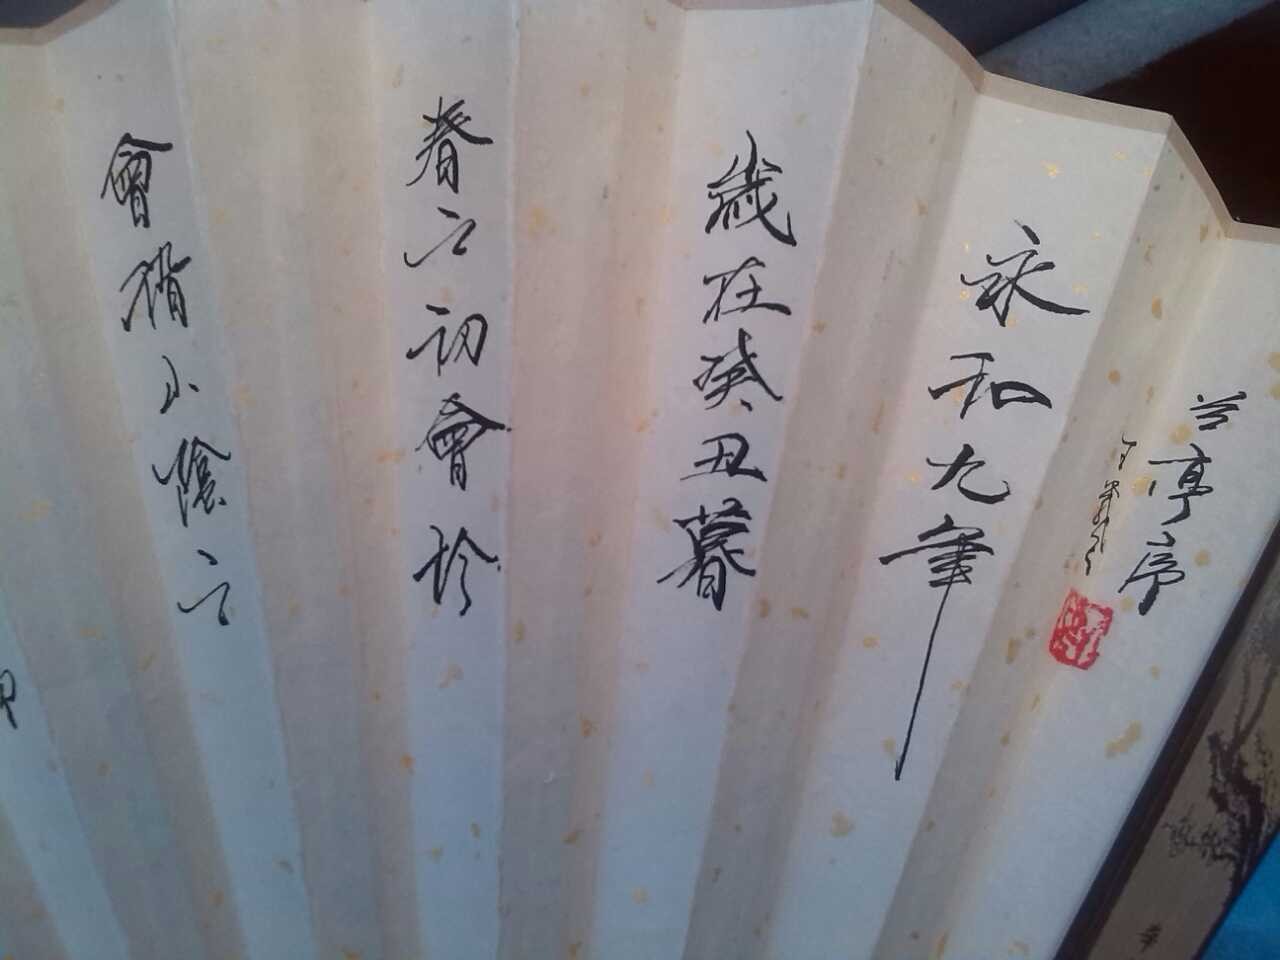 兰亭序
王羲之
永和九年
歲在癸丑暮
春之初會於
會稽山陰之